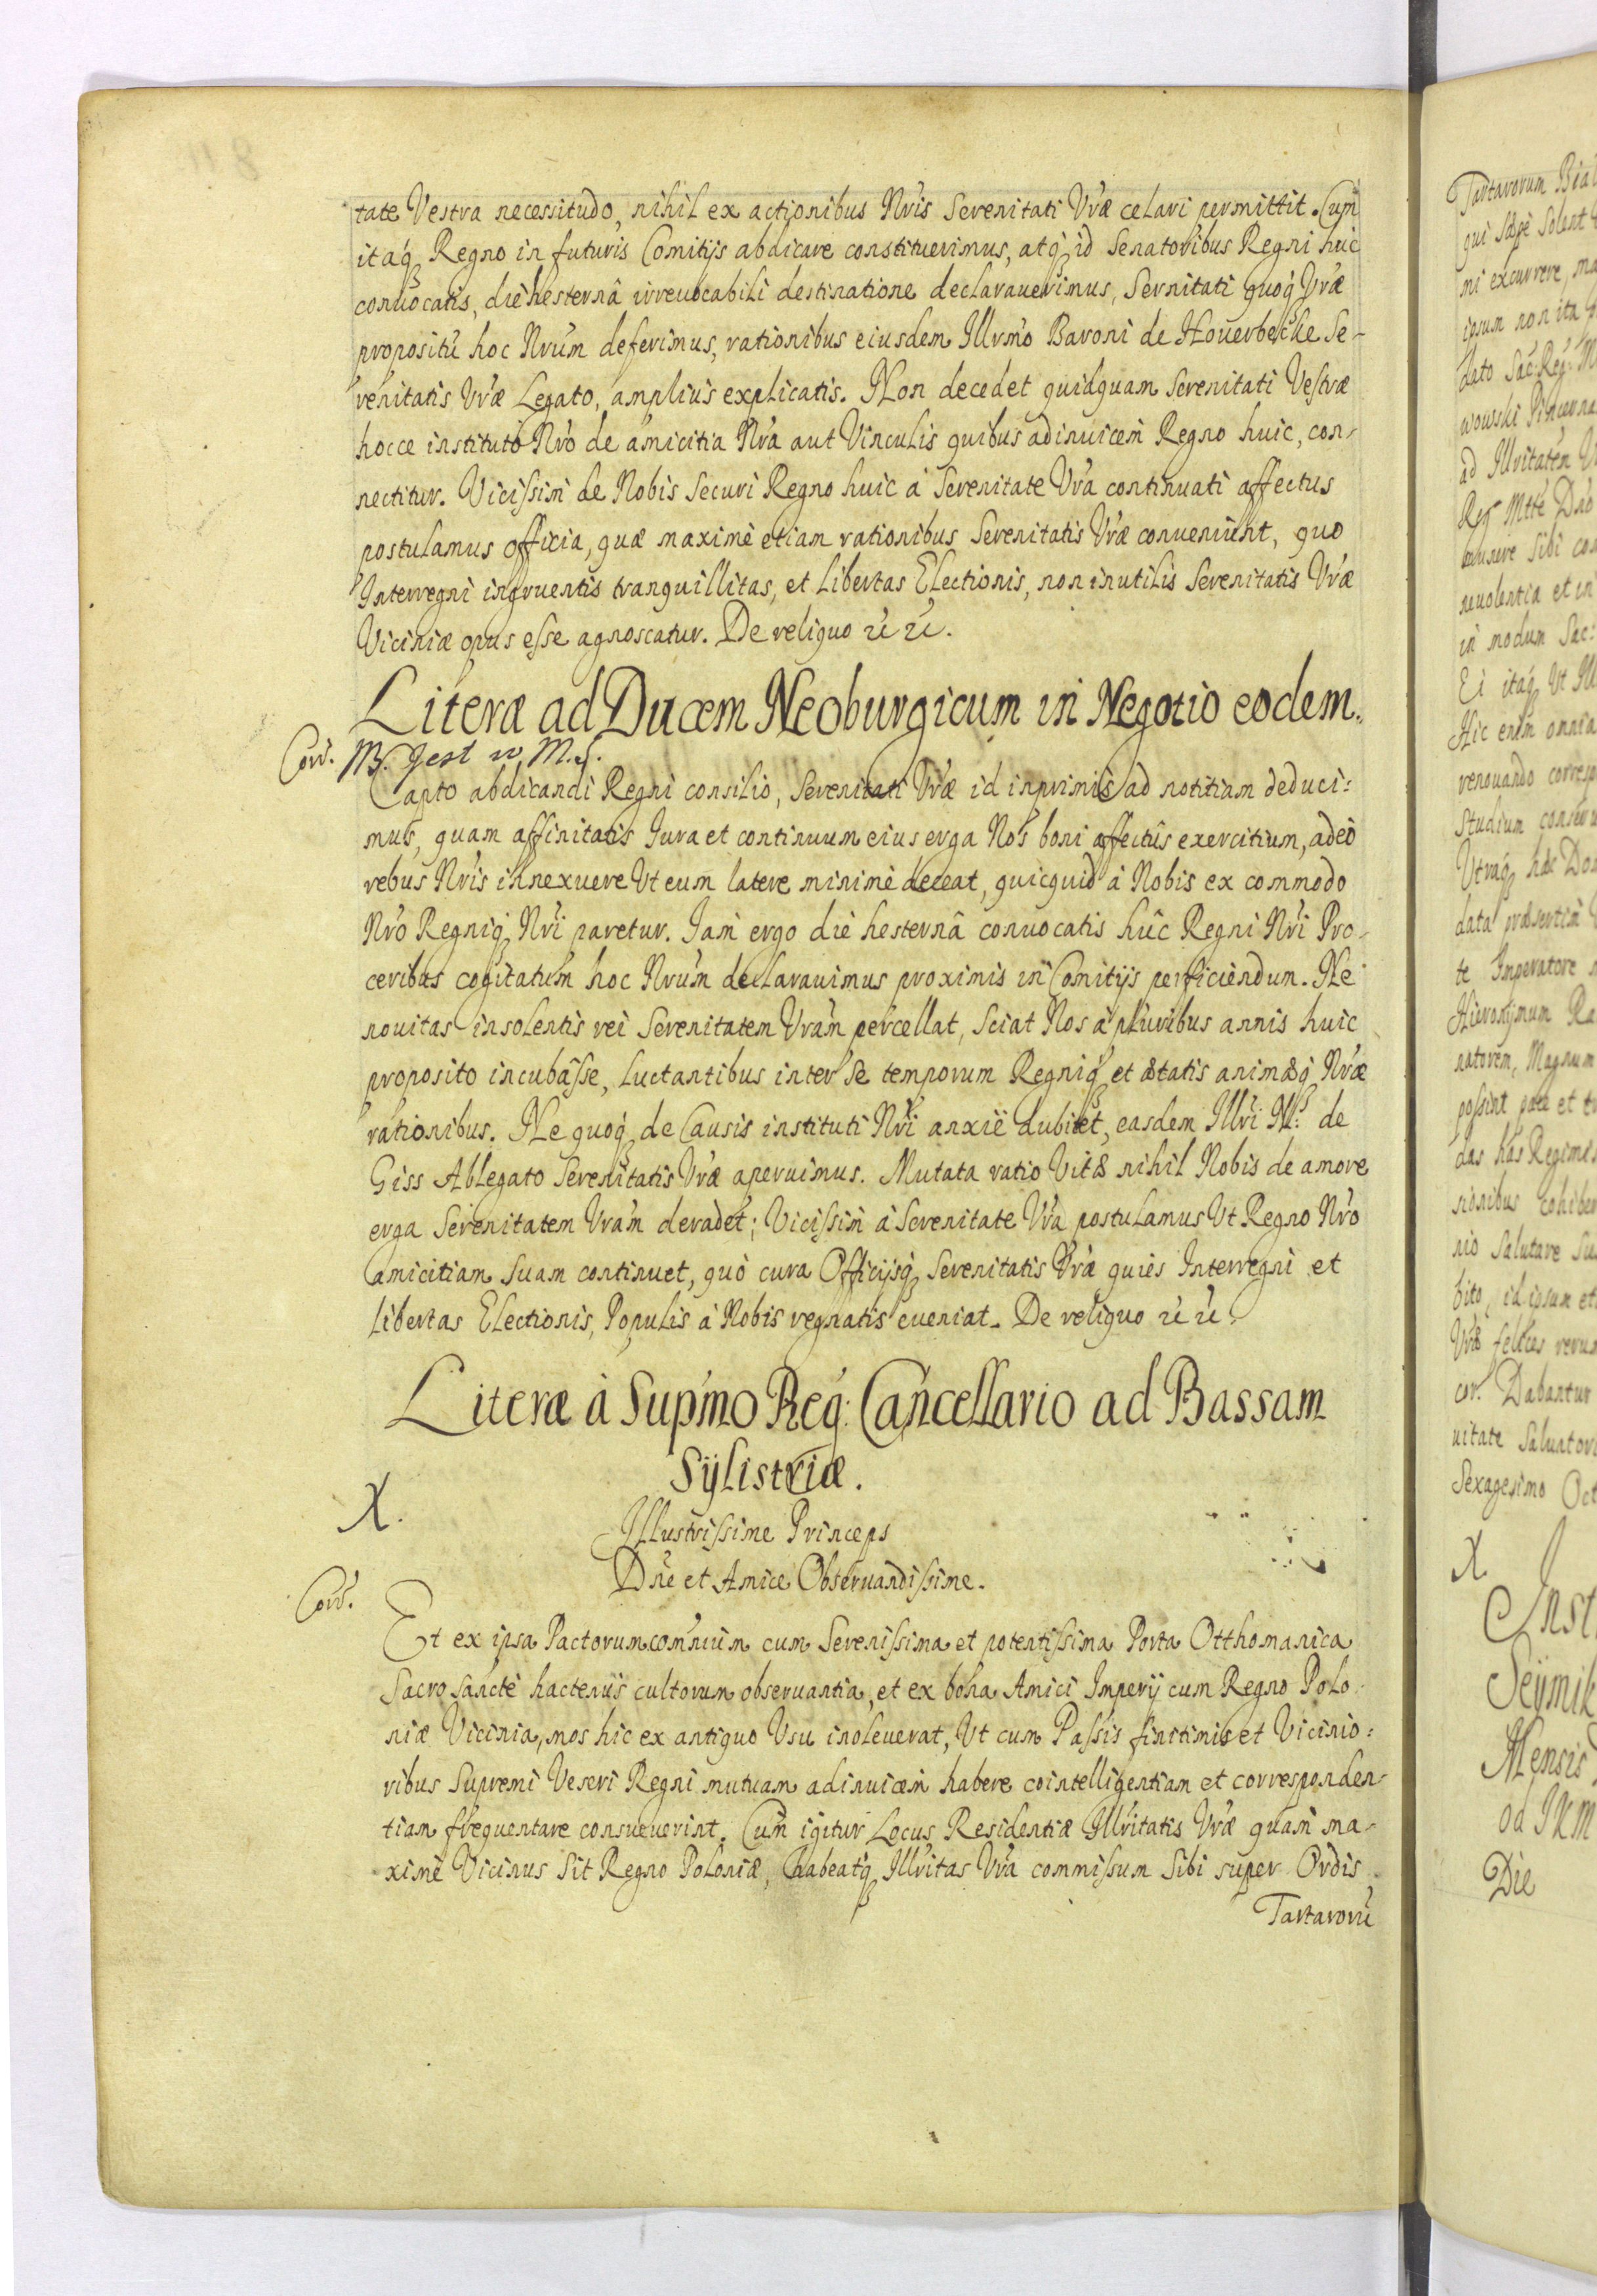 tate Vestra necessitudo, nihil ex actionibus Nris Serenitati Vræ celari permittit. Cum
itaq Regno in futuris Comitijs abdicare constituerimus, atq id Senatoribus Regni huic
conuocatis, die hesternâ irreuocabili destinatione declarauerimus, Sernitati quoq Vræ
propositu hoc Nrum deferimus, rationibus eiusdem Illrmo Baroni de Houerbecke Se-
renitatis Vræ Legato, amplius explicatis. Non decedet quidquam Serenitati Vestræ
hocce instituto Nro de amicitia Nra aut Vinculis quibus adinuicem Regno huic, con-
nectitur. Vicissim de Nobis securi Regno huic à Serenitate Vra continuati affectus
postulamus officia, quæ maximè etiam rationibus Serenitatis Vræ conueniunt, quo
Interregni ingruentis tranquillitas, et libertas Electionis, non inutilis Serenitatis Vræ
Viciniæ opus esse agnoscatur. De reliquo
Literæ ad Ducem Neoburgicum in Negotio eodem.
Corr. NB. Jest w M.S.
Capto abdicandi Regni consilio, Serenitati Vræ id inprimis ad notitiam deduci:
mus, quam affinitatis Iura et continuum eius erga Nos boni affectûs exercitium, adeò
rebus Nris innexuere Vt eum latere minimè deceat, quicquid à Nobis ex commodo
Nro Regniq Nri paretur. Iam ergo die hesternâ conuocatis hûc Regni Nri Pro-
ceribus cogitatum hoc Nrum declarauimus proximis in Comitijs perficiendum. Ne
nouitas insolentis rei Serenitatem Vram percellat, sciat Nos à pluribus annis huic
proposito incubâsse, luctantibus inter se temporum Regniq et ætatis animæq Nræ
rationibus. Ne quoq de Causis instituti Nri anxiè dubitet, easdem Illri de
Giss Ablegato Serenitatis Vræ aperuimus. Mutata ratio Vitæ nihil Nobis de amore
erga Serenitatem Vram deradet; Vicissim à Serenitate Vra postulamus Vt Regno Nro
amicitiam suam continuet, quò cura Officijsq Serenitatis Vræ quies Interregni et
libertas Electionis, Populis à Nobis regnatis eueniat. De reliquo
Literæ à Supmo Reg: Cancellario ad Bassam
Sÿlistriæ.
X.
Illustrissime Princeps
Dne et Amice Obseruandissime.
Corr.
Et ex ipsa Pactorum omnium cum Serenissima et potentissima Porta Otthomanica
Sacro sanctè hactenus cultorum obseruantia, et ex bona Amici Imperij cum Regno Polo-
niæ Vicinia, mos hic ex antiquo Vsu inoleuerat, Vt cum Passis finitimis et Vicinio:
ribus Supremi Veseri Regni mutuam adinuicem habere cointelligentiam et corresponden-
tiam frequentare consueuerint. Cum igitur Locus Residentiæ Illritatis Vræ quam ma-
ximè Vicinus sit Regno Poloniæ, habeatq Illritas Vra commissum sibi super Ordis
Tartaroru
Tartarorum
qui sæpe solent
ni excurrere, ma
ipsum non ita
dato Sac: Reg: M
wowski Pincerna
ad Illritatem V
Reg Mtte Dno
neuolentia et in
in modum Sac:
Ei itaq Vt Ill
Hic enim omnia
renouando corresp
studium conseru
data præsertim
te Imperatore
Hieronÿmum Ra
natorem, Magnum
possint pace et
das has Regimi
sionibus cohiber
nio salutare su
bito, id ipsum et
Vræ felices
cor. Dabantur
uitate Saluatori
Sexagesimo Oct
X
Inst
Seÿmik
Mensis
od JKM
Die